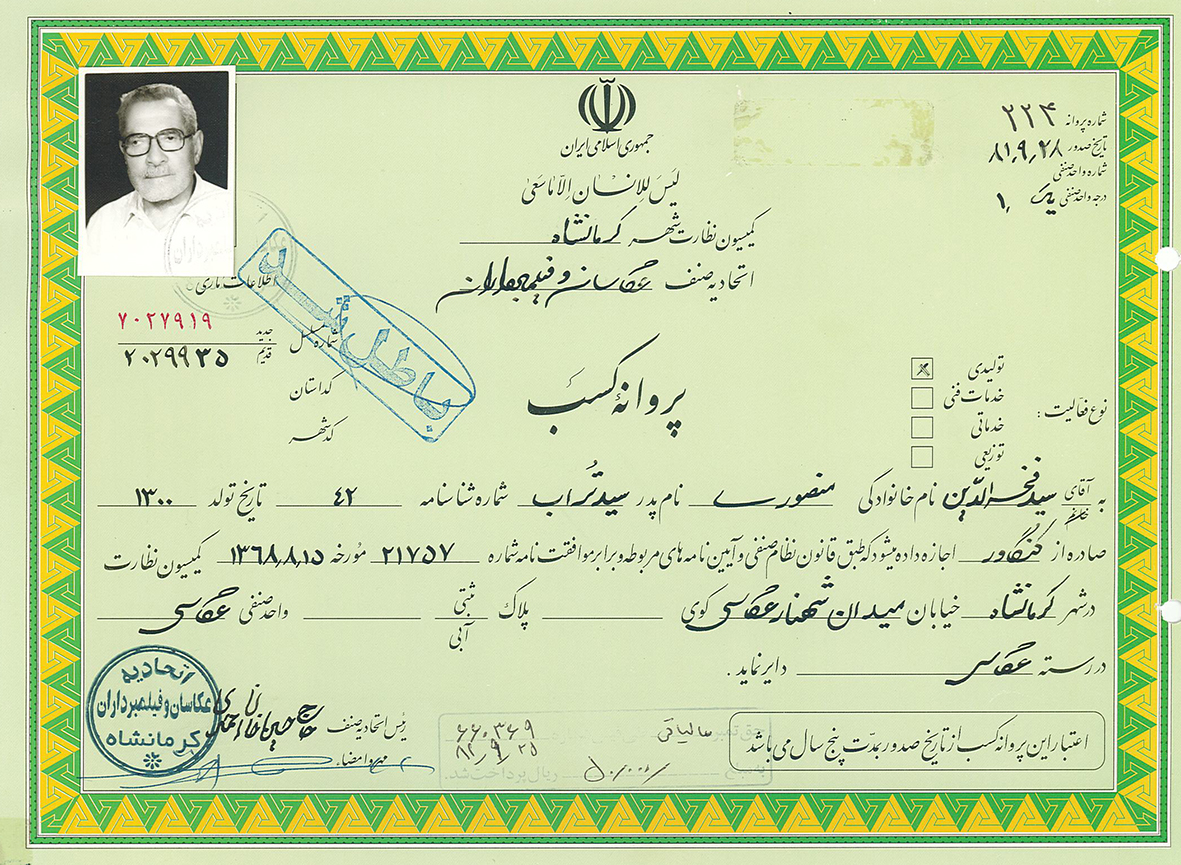 جمهوری اسلامی ایران
لَیسَ لِلاِنسانِ اِلّا ماسَعیٰ
کمیسیون نظارت شهر کرمانشاه
اتحادیه صنف عکاسان و فیلمبرداران
شماره پروانه ۲۲۴
تاریخ صدور ۸۱,۹,۲۸
شماره واحد صنفی
درجه واحد صنفی یک ۱
اطلاعات ماری
شماره مسلسل
جدید ۷۰۲۷۹۱۹
قدیم ۲۰۲۹۹۳۵
کد استان
کد شهر
باطل شد
پروانهٔ کسب
نوع فعالیت :
تولیدی
خدمات فنی
خدماتی
توزیعی
به آقای خانم سید فخرالدین نام خانوادگی منصوری نام پدر سید تراب شماره شناسنامه ۴۲ تاریخ تولد ۱۳۰۰
صادره از کنگاور اجازه داده میشود که طبق قانون نظام صنفی و آیین نامه های مربوطه و برابر موافقت نامه شماره ۲۱۷۵۷ مورخه ۱۳۶۸,۸,۱۵ کمیسیون نظارت
در شهر کرمانشاه خیابان میدان شهناز عکاسی کوی پلاک ثبتی آبی واحد صنفی عکاسی
در رسته عکاسی دایر نماید .
اتحادیه
عکاسان و فیلمبرداران
کرمانشاه
رئیس اتحادیه صنف حاج
مهر و امضاء
مالیاتی
۶۶۰۳۶۹
۸۱,۹,۲۵
ریال پرداخت شد.
اعتبار این پروانه کسب از تاریخ صدور بمدّت پنج سال می باشد